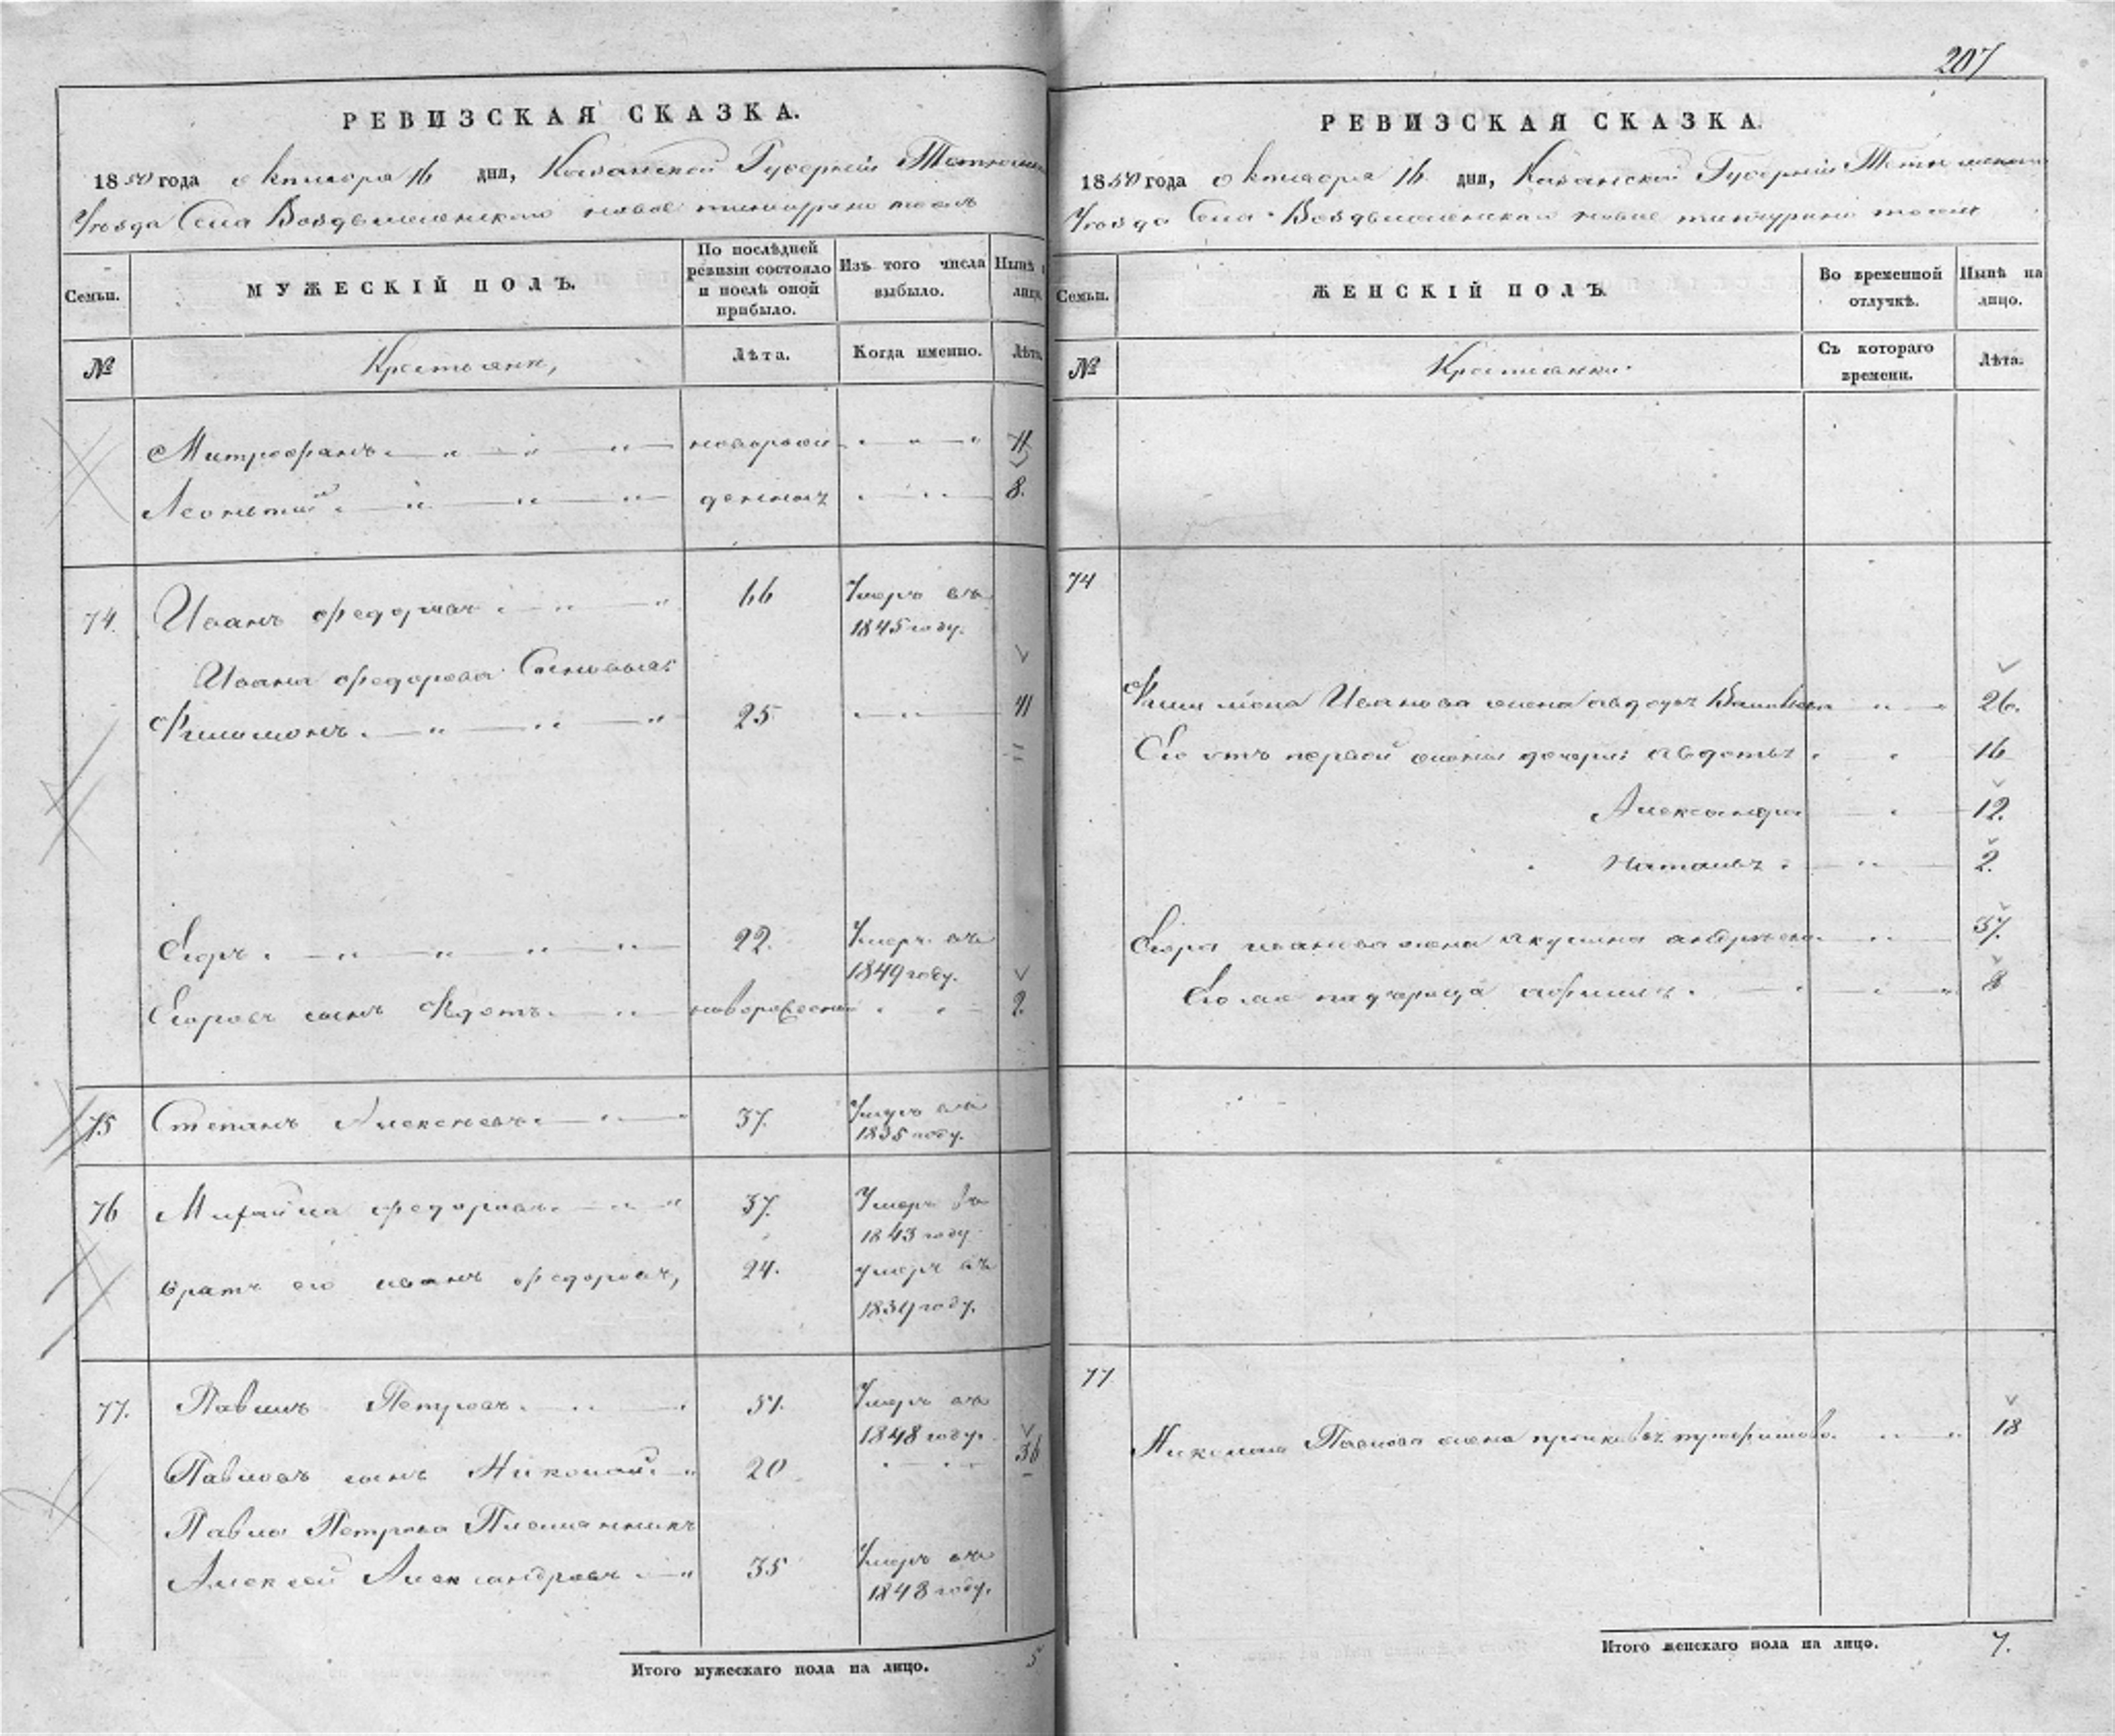 207
РЕВИЗСКАЯ СКАЗКА.
1850 года октября 16 дня, Казанской Губерніи Тетюшскаго
Уѣзда Села Воздвиженскаго новое тинчурино тожъ
Семьи.
МУЖЕСКІЙ ПОЛЪ.
По послѣдней ревизіи состояло и послѣ оной прибыло.
Изъ того числа выбыло.
Нынѣ на лицо.
№
Крестьяне,
Лѣта.
Когда именно.
Лѣта.
Митрофанъ новорож 11
Леонтій денныхъ 8.
74. Иванъ федоровъ 66 Умеръ въ 1845 году.
Ивана федорова Сыновья:
Филимонъ 25 41
Егоръ 22. Умеръ въ 1849 году.
Егоровъ сынъ Федотъ новорожденный 2.
75 Степанъ Алексѣевъ 37. Умеръ въ 1835 году.
76 Михайла федоровъ 37. Умеръ въ 1843 году
братъ его иванъ федоровъ, 24. умеръ въ 1834 году.
77. Павелъ Петровъ 51. Умеръ въ 1848 году.
Павловъ сынъ Николай 20 36
Павла Петрова Племянникъ
Алексей Александровъ 35 Умеръ въ 1848 году.
Итого мужескаго пола на лицо. 5
РЕВИЗСКАЯ СКАЗКА.
1850 года октября 16 дня, Казанской Губерніи Тетюшскаго
Уѣзда Села Воздвиженскаго новое тинчурино тожъ
Семьи.
ЖЕНСКІЙ ПОЛЪ
Во временной отлучкѣ.
Нынѣ на лицо.
№
Крестьянки.
Съ котораго времени.
Лѣта.
74
Филимона Иванова жена авдотья 26.
Его отъ первой жены дочери: авдотья 16
Александра 12.
Наталья 2.
Егора иванова жена акулина андрѣева 37.
Ея падчерица 8
77
Николая Павлова жена 18
Итого женскаго пола на лицо. 7.